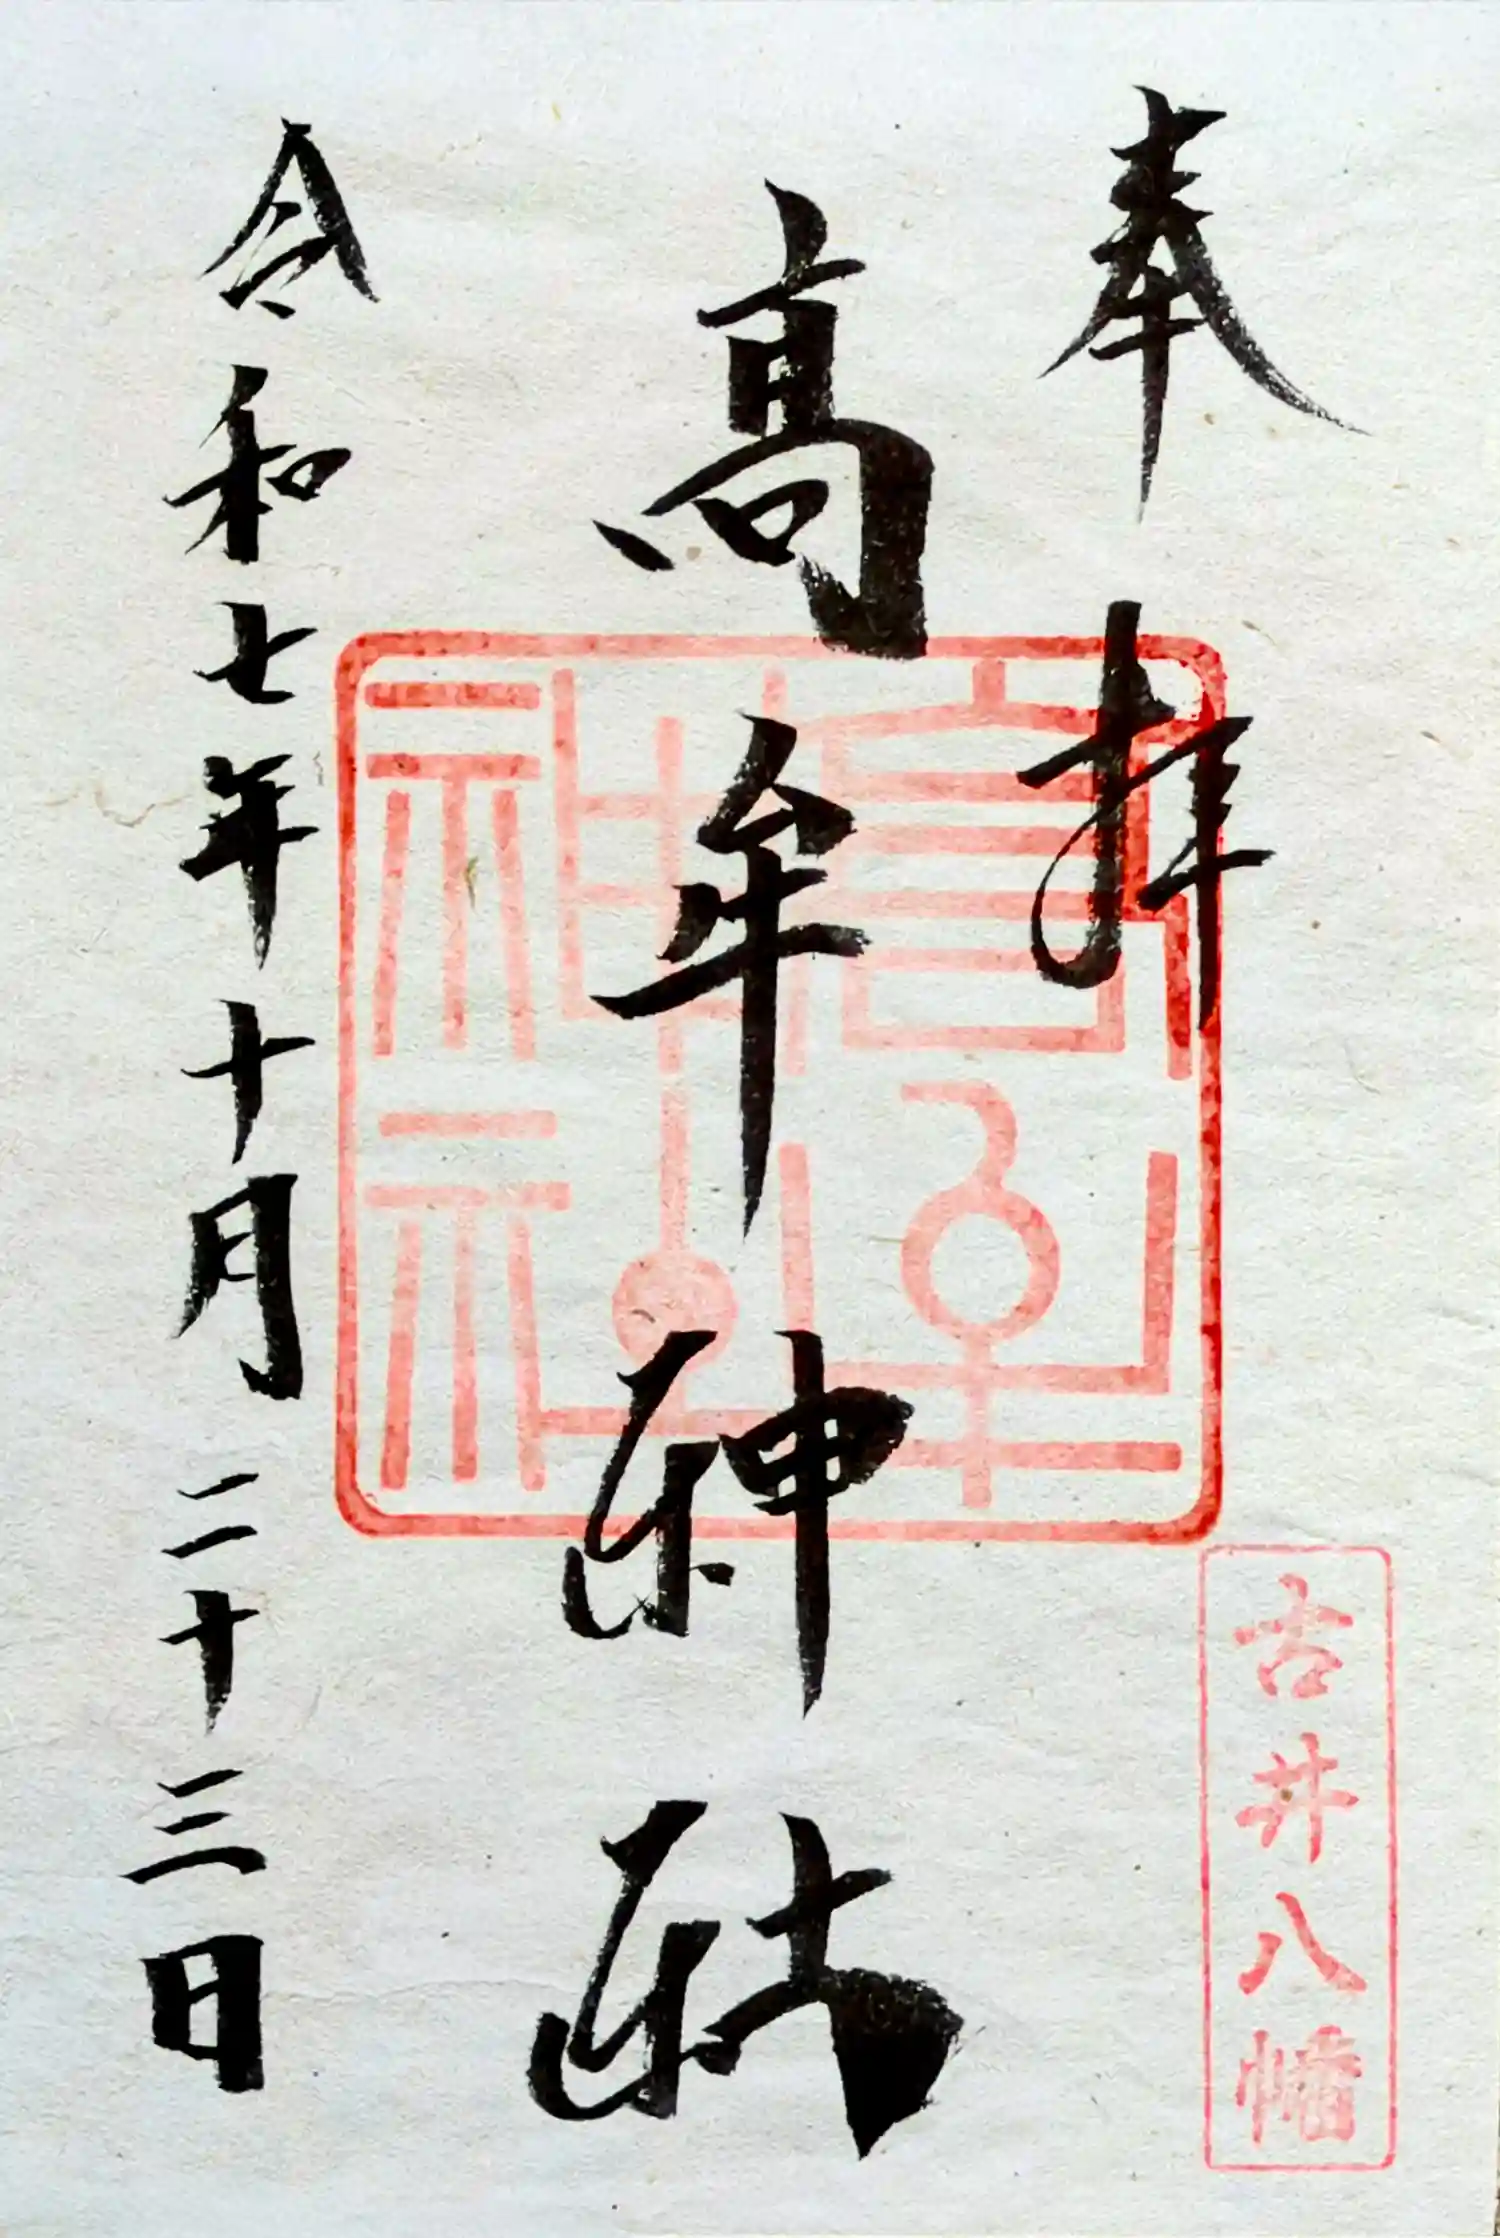 奉拝
高牟神社
高牟神社
古井八幡
令和七年十月二十三日